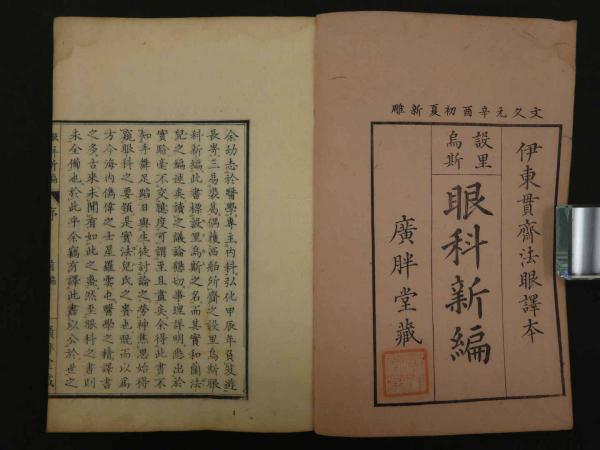 文久元辛酉初夏新雕
伊東貫齋法眼譯本
設里
烏斯
眼科新編
廣胖堂藏
余幼志於醫學專主内科弘化甲辰年負笈遊
長嵜三易裘葛偶獲西舶所齎之設里烏斯眼
科新編此書標設里烏斯之名而其實和蘭法
兒之編述矣讀之議論穩切事理詳明悉出於
實驗毫不交臆度可謂至且盡矣余得此書不
知手舞足蹈日與生徒討論之勞神焦思始得
窺眼科之要領是實法兒氏之賚也既而以爲
方今海内偉之士星羅雲屯醫學之精譯書
之多古來未聞有如此之盛然至眼科之書則
未全備也於此乎余竊有譯此書以公於世之
眼科新編
序